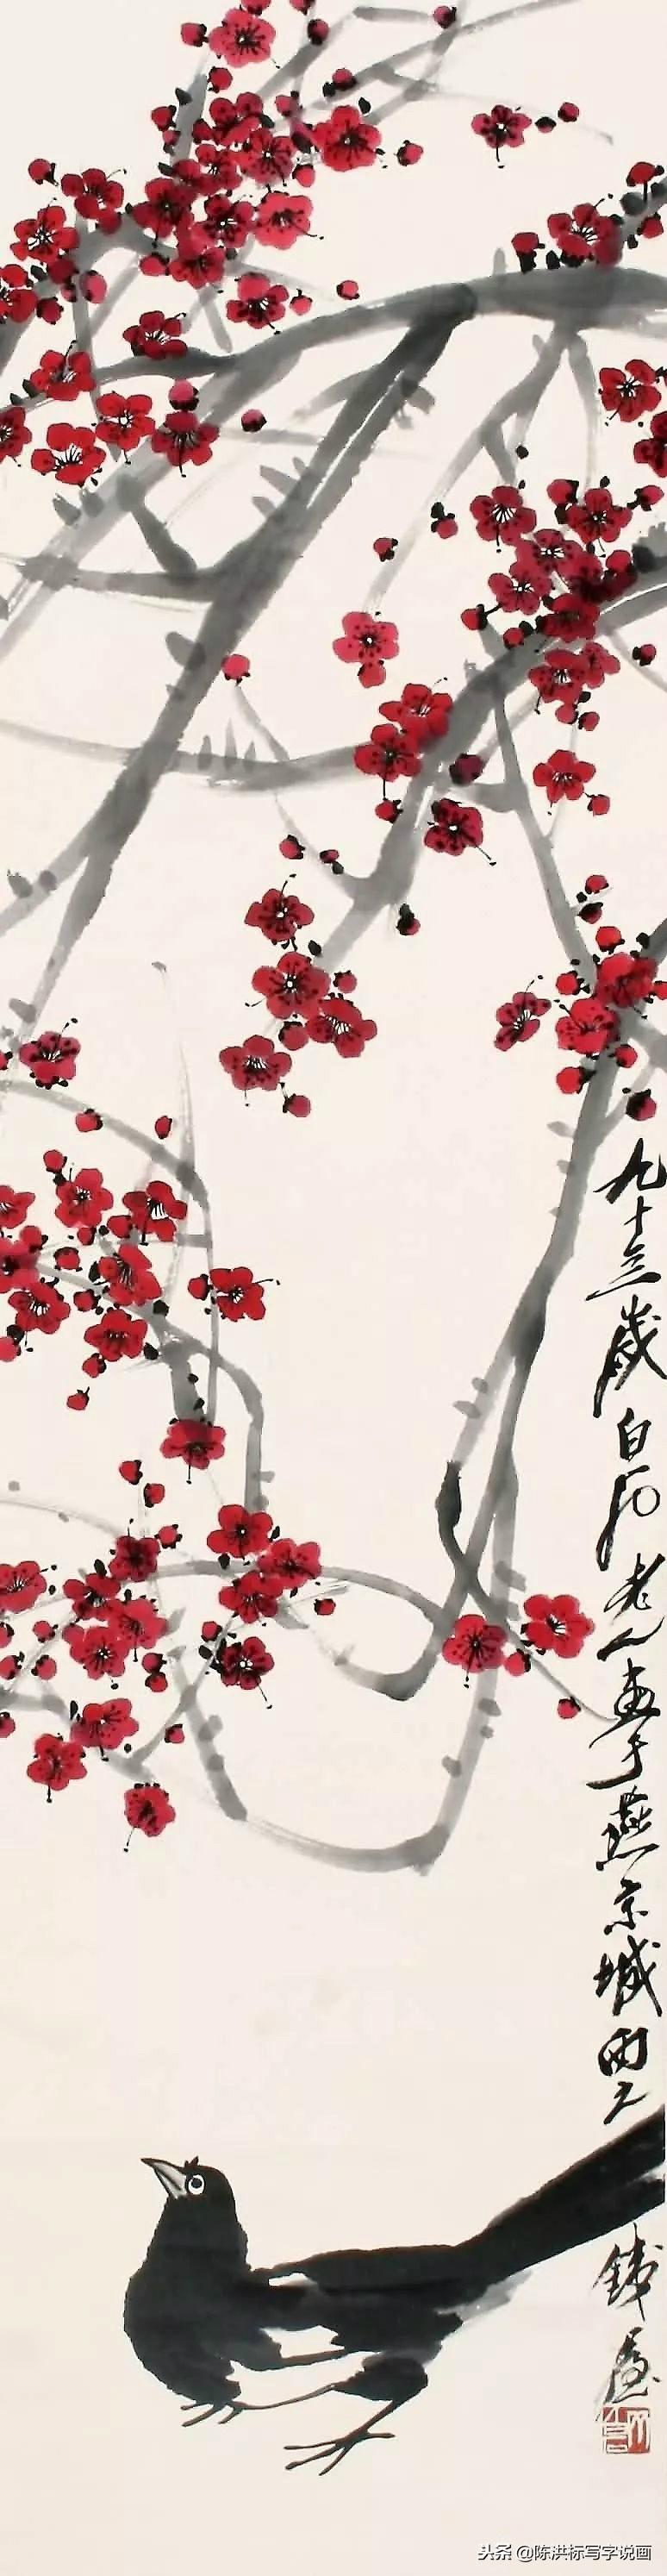 九十三歲白石老人畫于燕京城西
鐵屋
头条 @陈洪标写字说画